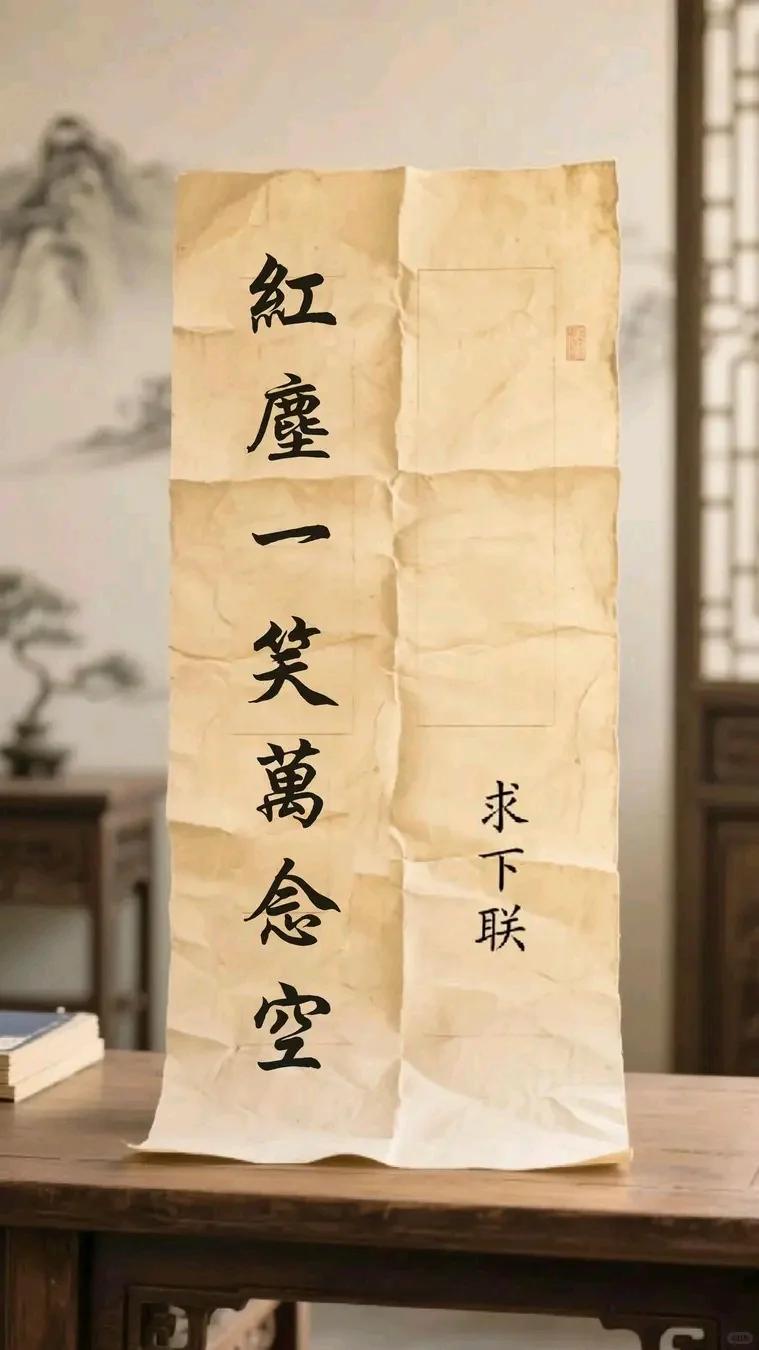 紅塵一笑萬念空
求下联